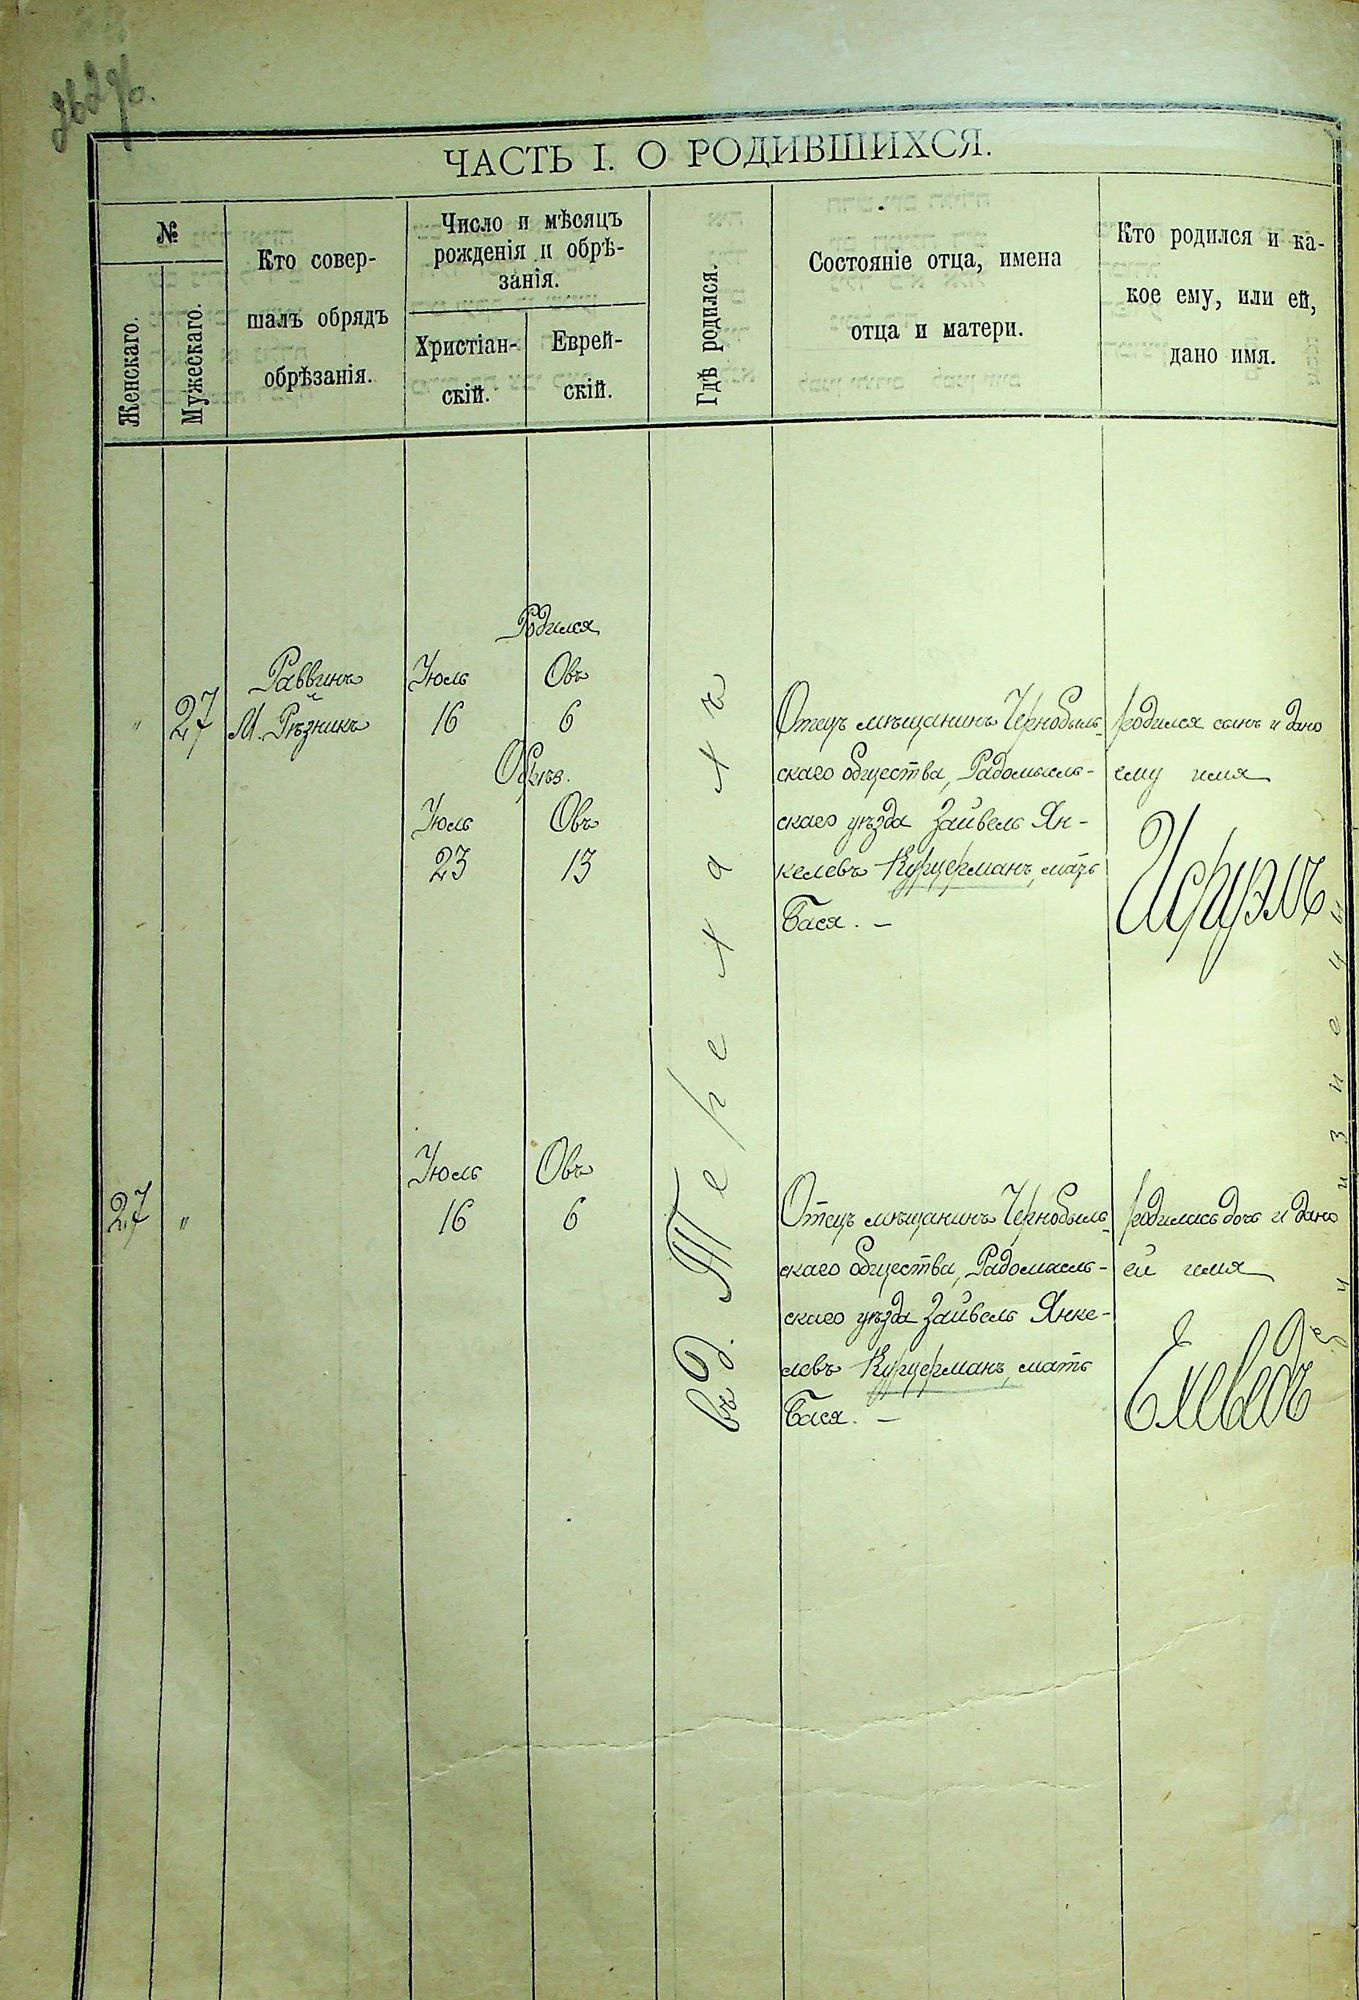 ЧАСТЬ I. О РОДИВШИХСЯ.
№
Женскаго.
Мужескаго.
Кто совер-
шалъ обрядъ
обрѣзанія.
Число и мѣсяцъ
рожденія и обрѣ-
занія.
Христіан-
скій.
Еврей-
скій.
Гдѣ родился.
Состояніе отца, имена
отца и матери.
Кто родился и ка-
кое ему, или ей,
дано имя.
"
27
Раввинъ
и
М. Рѣзникъ
Родился
Іюль
Овъ
16
6
Обрѣз.
Іюль
Овъ
23
13
въ д. Терехахъ
Отецъ мѣщанинъ Чернобыль-
скаго общества, Радомысль-
скаго уѣзда Зайвель Ян-
келевъ Курцерманъ, мать
Бася. —
родился сынъ и дано
ему имя
Исруэлъ
27
"
Іюль
Овъ
16
6
Отецъ мѣщанинъ Чернобыль-
скаго общества, Радомысль-
скаго уѣзда Зайвель Янке-
левъ Курцерманъ, мать
Бася. —
родилась дочь и дано
ей имя
Ехеведъ